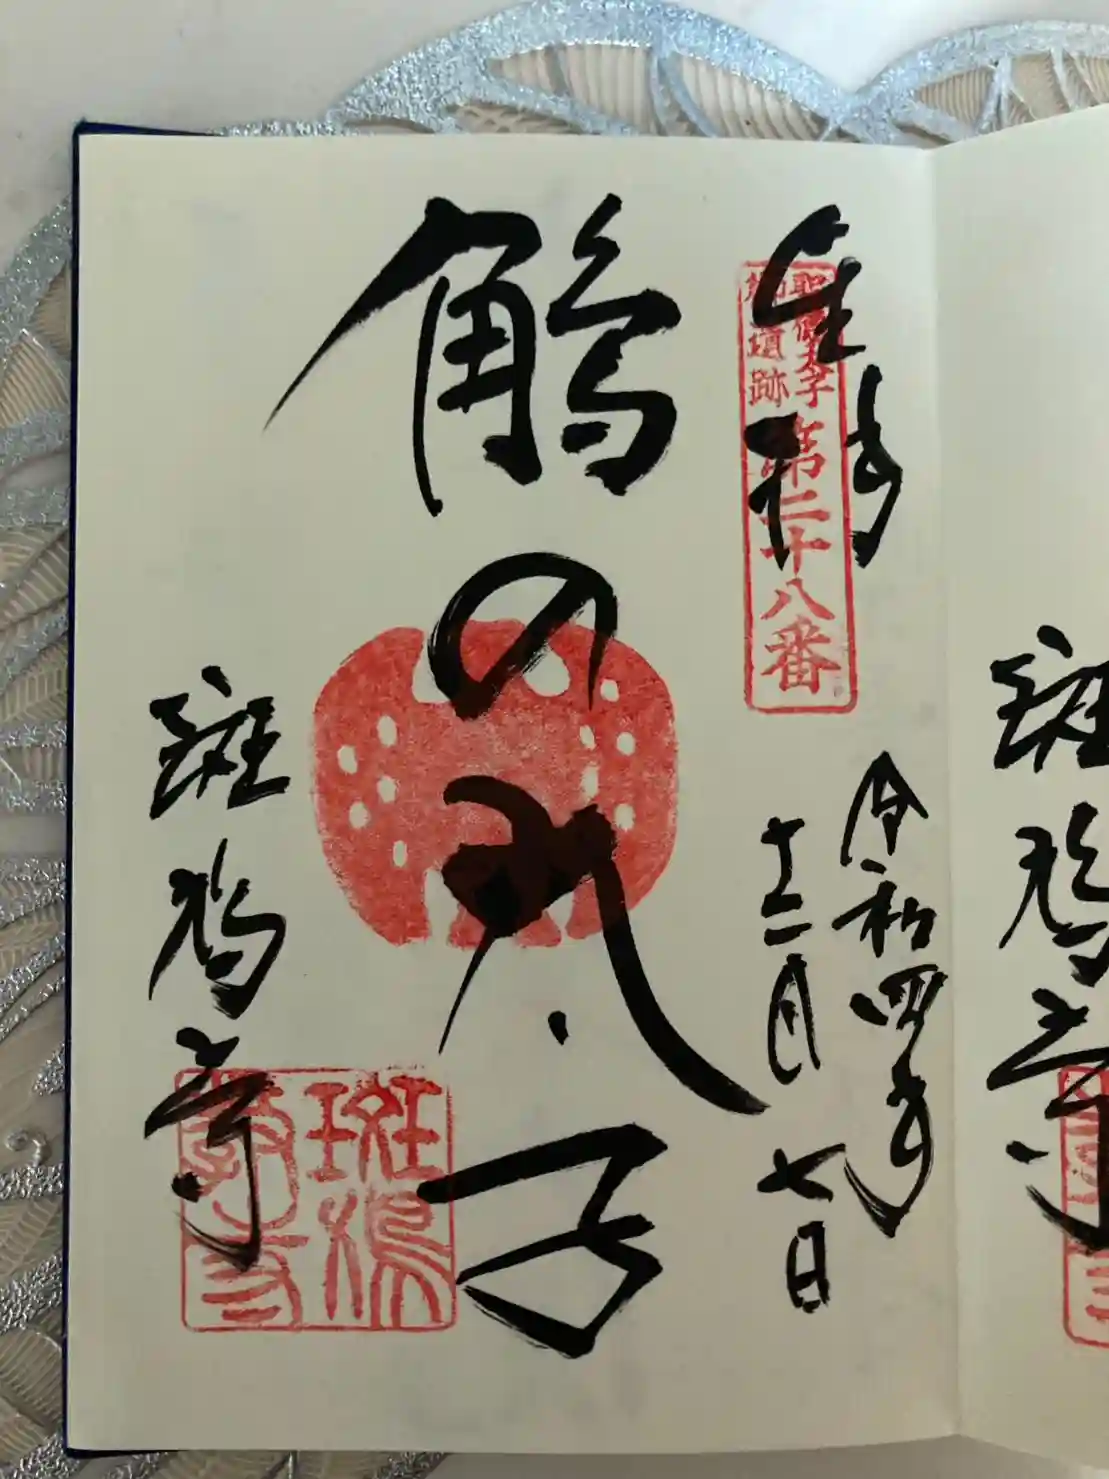 奉拝
聖徳太子
御遺跡
第二十八番
令和四年
十二月七日
鵤の太子
斑鳩寺
斑鳩
斑鳩寺